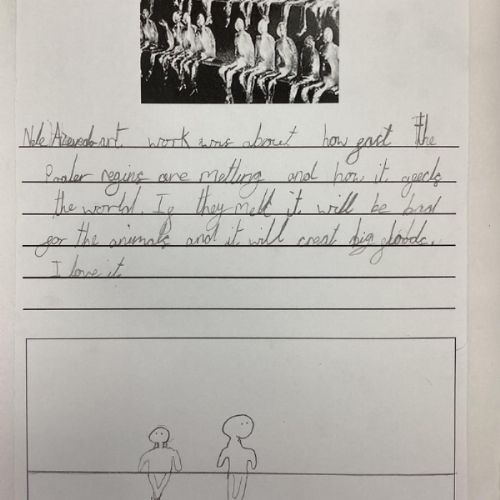 Nele Azevedo art work was about how fast the
Poaler regins are meltling and how it afeects
the world. If they melt it will be bad
for the animals and it will creat big floods.
I love it